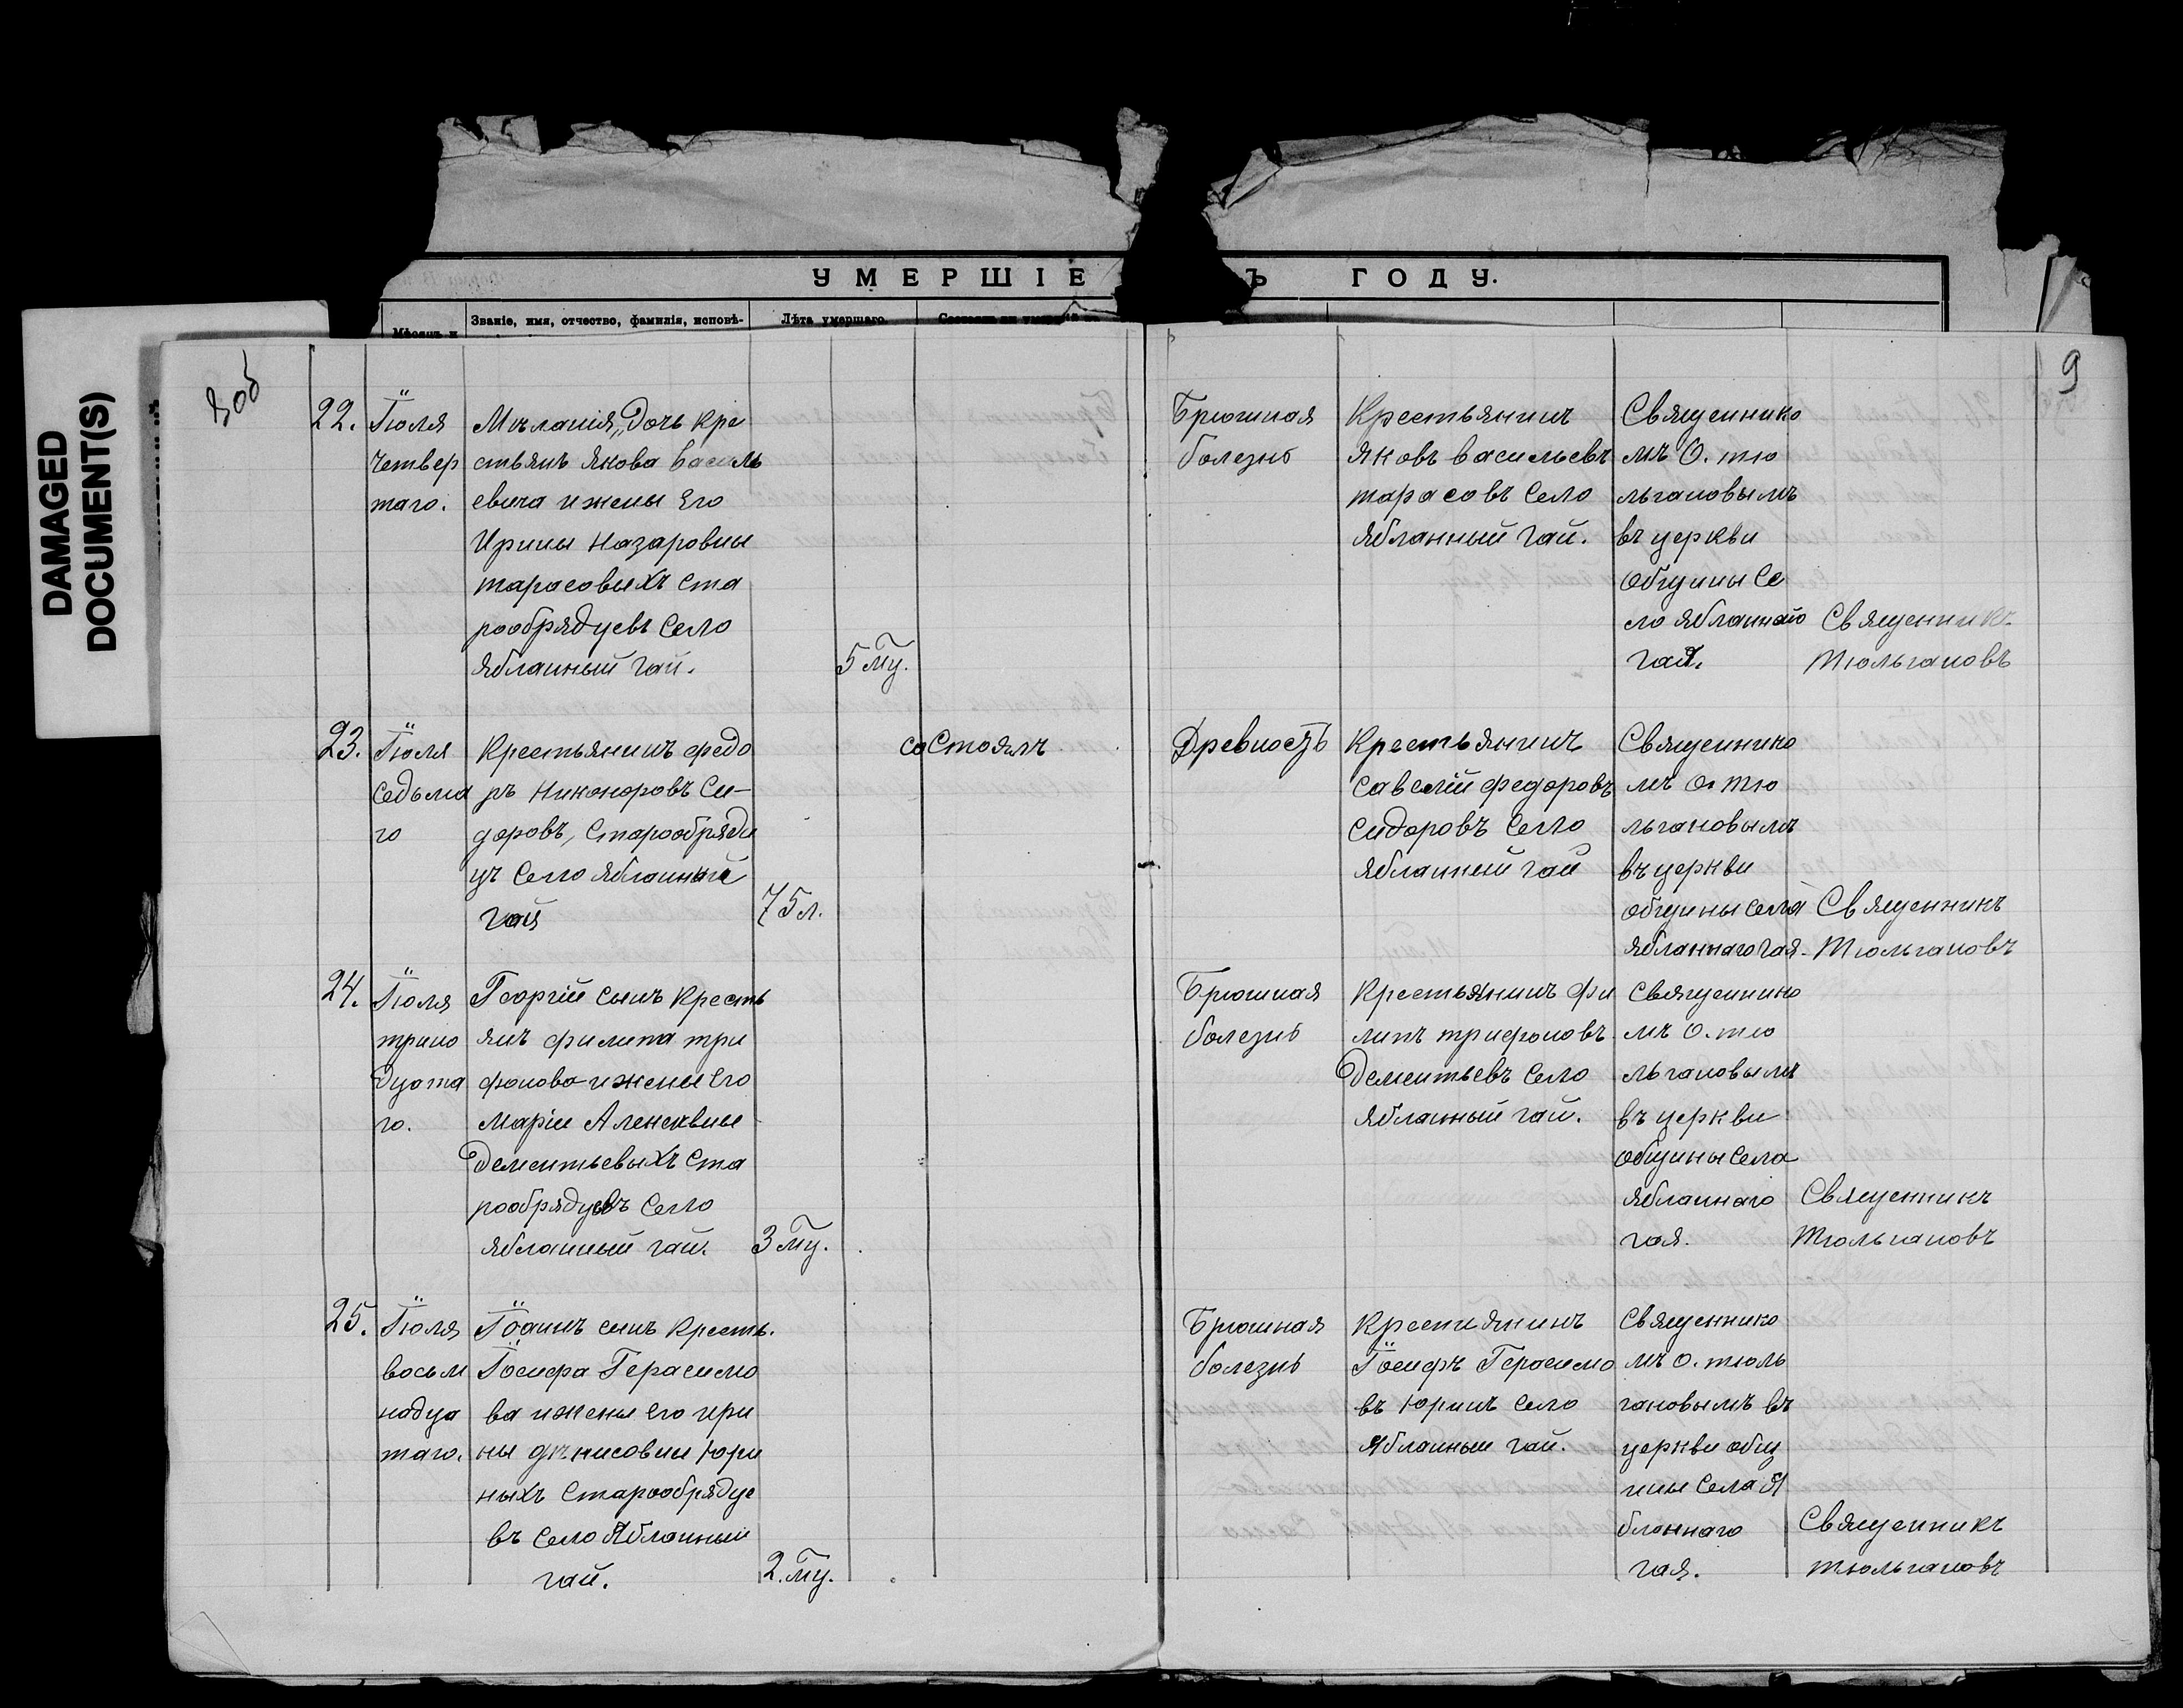 DAMAGED
DOCUMENT(S)
УМЕРШІЕ
Ъ ГОДУ.
Мѣсяцъ и
Званіе, имя, отчество, фамилія, исповѣ-
Лѣта умершаго.
Состоялъ ли умершій въ
8об
9
22.
Іюля
четвер
таго.
Мѣланія, дочь кре
стьянъ Якова василь
евича и жены Его
Ирины Назаровны
тарасовыхъ Ста
рообрядцевъ Село
Ябланный гай.
5 мц.
Брюшная
болезнь
Крестьянинъ
Яковъ васильевъ
тарасовъ Село
Яблонный гай.
Священнико
мъ О. тю
льгановымъ
въ церкви
общины Се
ло Яблоннаго
гая.
Священникъ
Тюльгановъ
23.
Іюля
Седьма
го
Крестьянинъ федо
ръ Никоноровъ Си-
доровъ, Старообряде
цъ Село яблонный
гай
75 л.
со Стоялъ
Древность
Крестьянинъ
Савелій федоровъ
Сидоровъ Село
яблонный гай
Священнико
мъ О. Тю
льгановымъ
въ церкви
общины села
яблоннаго гая.
Священникъ
Тюльгановъ
24.
Іюля
трина
дцата
го.
Георгій сынъ Кресть
янъ филипа три
фонова и жены Его
маріи Алексѣвны
Дементьевыхъ Ста
рообрядцевъ Село
яблонный гай.
3 мц.
Брюшная
болезнь
Крестьянинъ фи
липъ трифоновъ
Дементьевъ Село
яблонный гай.
Священнико
мъ О. тю
льгановымъ
въ церкви
общины Села
яблоннаго
гая.
Священникъ
Тюльгановъ
25.
Іюля
восьм
надца
таго.
Іоаннъ сынъ Кресть.
Іосифа Герасимо
ва и жены его ири
ны дѣнисовны Юри
ныхъ Старообрядце
въ Село Яблонный
гай.
2. мц.
Брюшная
болезнь
Крестиянинъ
Іосифъ Герасимо
въ Юринъ Село
Яблонный гай.
Священнико
мъ О. тюль
гановымъ въ
церкви общ
ины Села Я
блоннаго
гая.
Священникъ
тюльгановъ